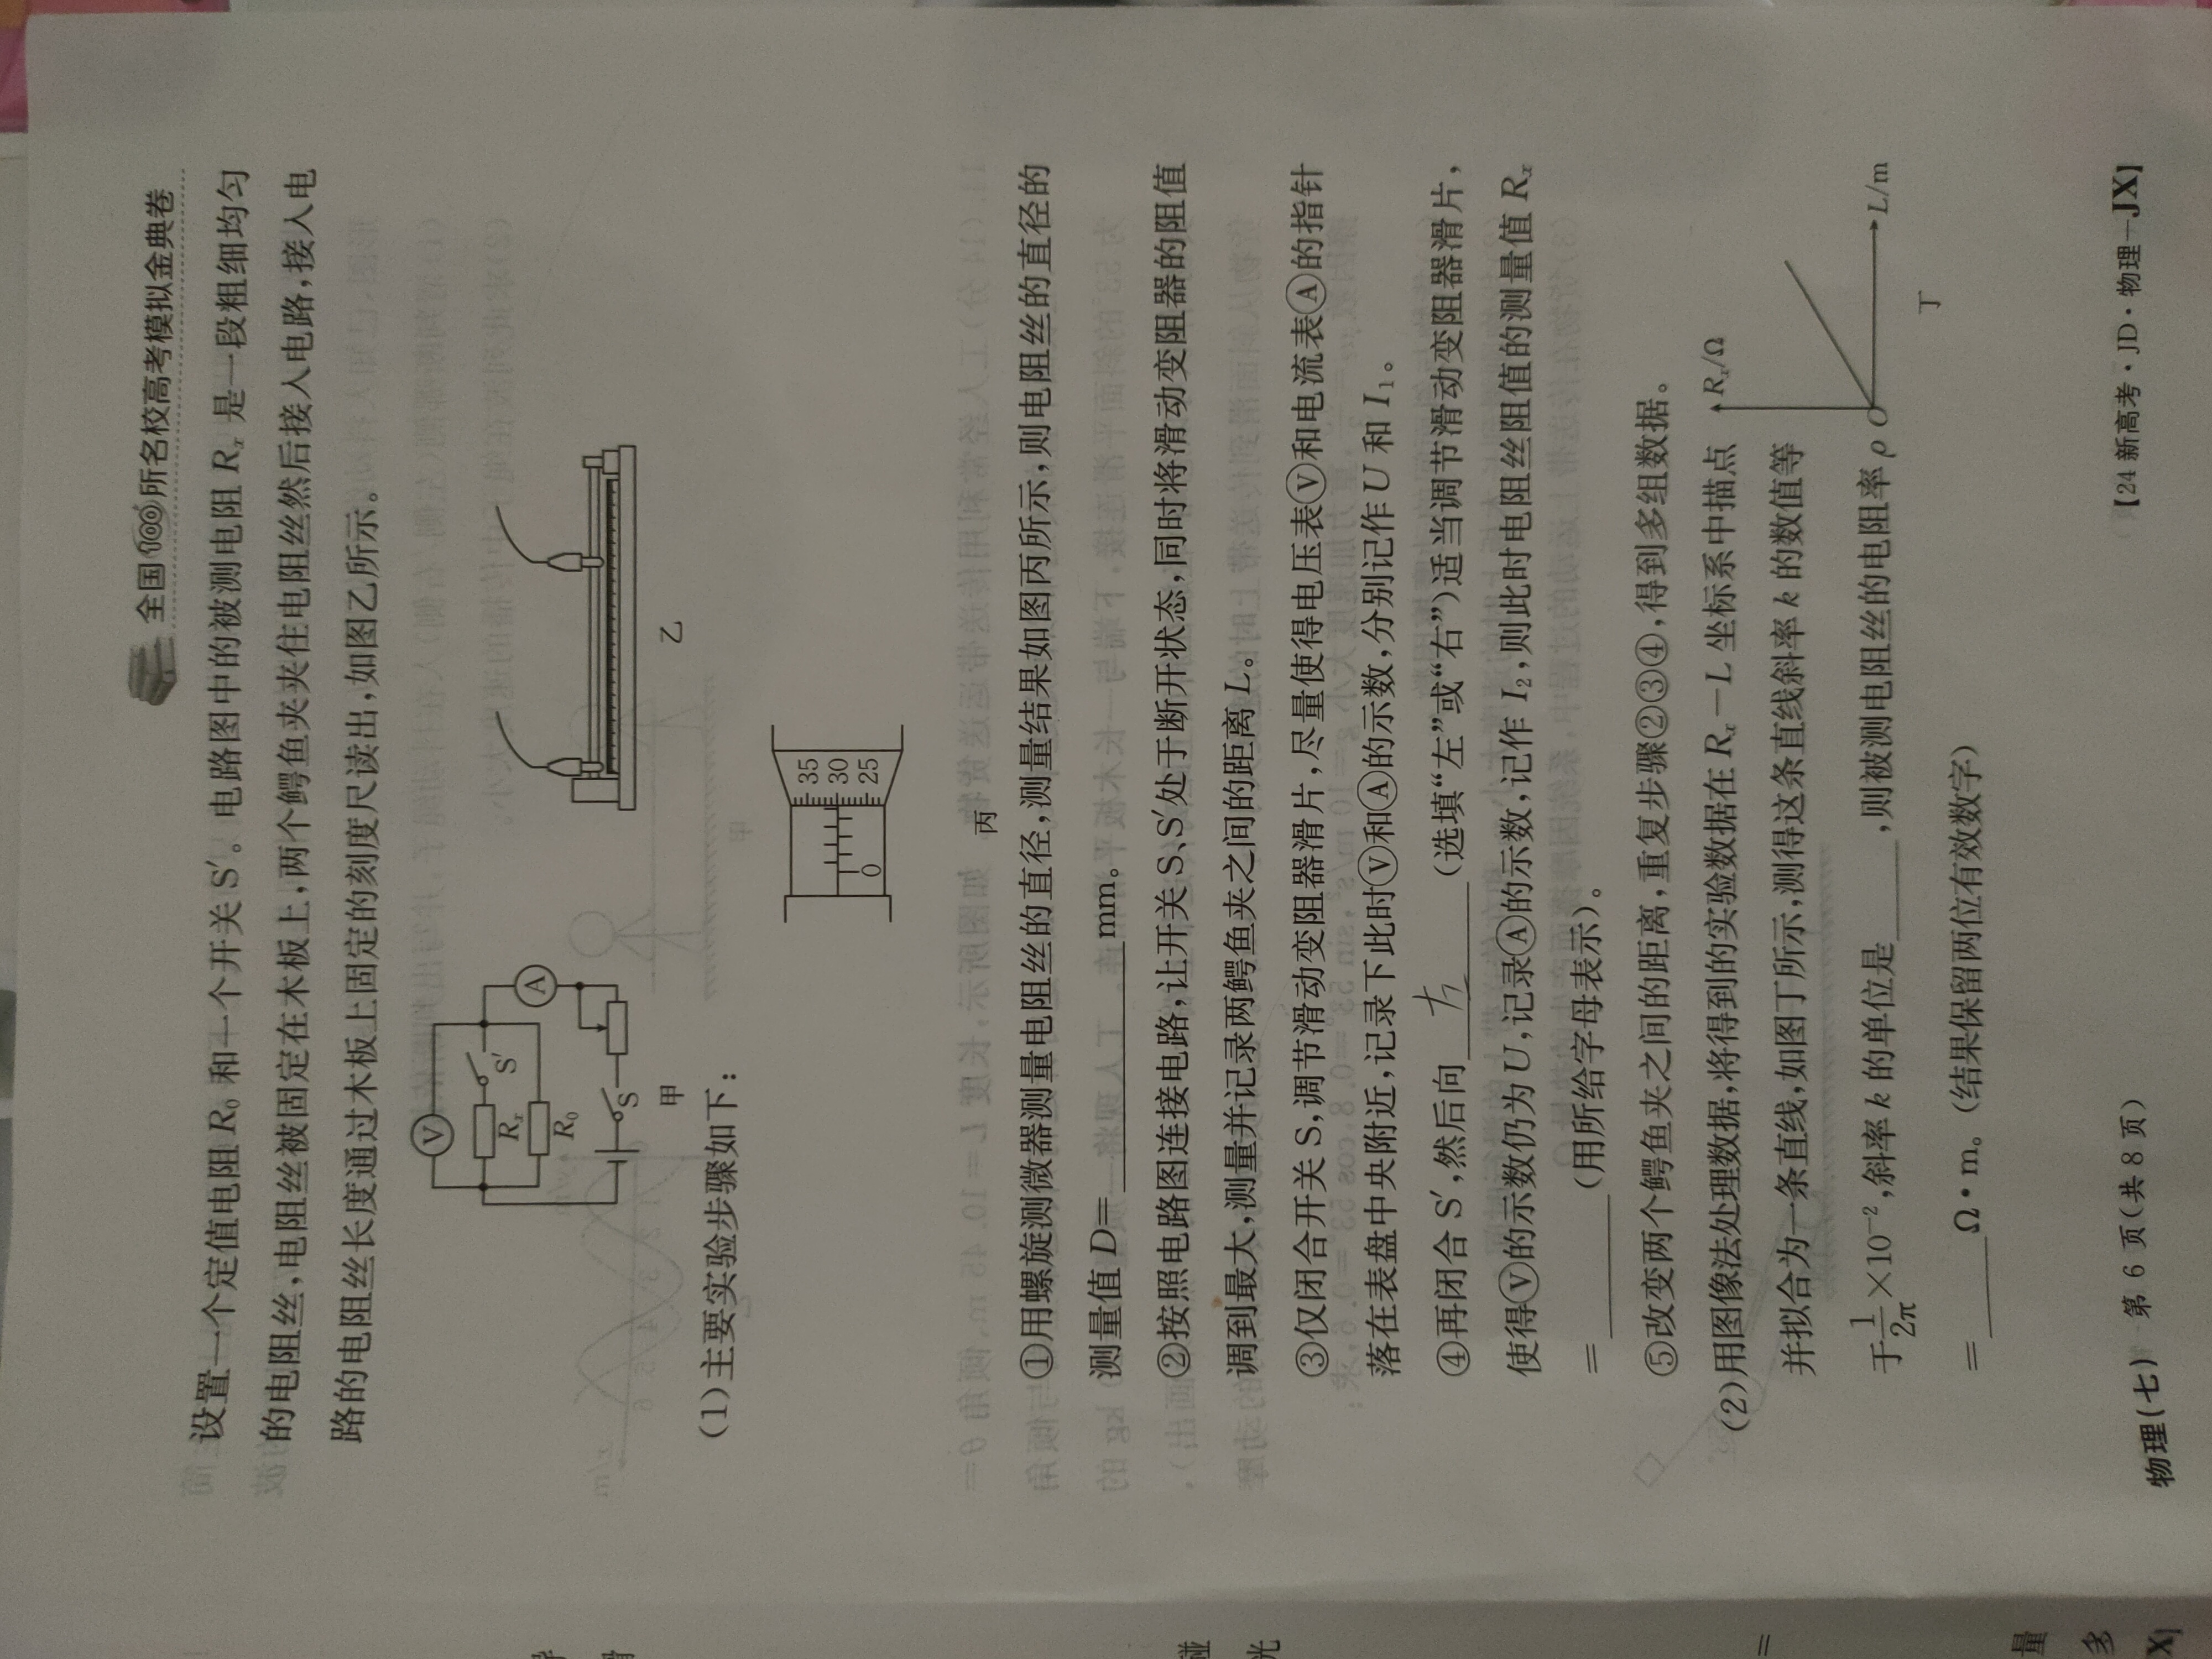 全国100所名校高考模拟金典卷
设置一个定值电阻 R₀ 和一个开关 S′。电路图中的被测电阻 Rₓ 是一段粗细均匀
的电阻丝,电阻丝被固定在木板上,两个鳄鱼夹夹住电阻丝然后接入电路,接入电
路的电阻丝长度通过木板上固定的刻度尺读出,如图乙所示。
V
Rₓ
S′
R₀
A
S
甲
乙
0
35
30
25
丙
(1)主要实验步骤如下:
①用螺旋测微器测量电阻丝的直径,测量结果如图丙所示,则电阻丝的直径的
测量值 D=______mm。
②按照电路图连接电路,让开关 S、S′处于断开状态,同时将滑动变阻器的阻值
调到最大,测量并记录两鳄鱼夹之间的距离 L。
③仅闭合开关 S,调节滑动变阻器滑片,尽量使得电压表Ⓥ和电流表Ⓐ的指针
落在表盘中央附近,记录下此时Ⓥ和Ⓐ的示数,分别记作 U 和 I₁。
④再闭合 S′,然后向______(选填“左”或“右”)适当调节滑动变阻器滑片,
使得Ⓥ的示数仍为 U,记录Ⓐ的示数,记作 I₂,则此时电阻丝阻值的测量值 Rₓ
=______(用所给字母表示)。
⑤改变两个鳄鱼夹之间的距离,重复步骤②③④,得到多组数据。
(2)用图像法处理数据,将得到的实验数据在 Rₓ－L 坐标系中描点
并拟合为一条直线,如图丁所示,测得这条直线斜率 k 的数值等
于 1/2π ×10⁻²,斜率 k 的单位是______,则被测电阻丝的电阻率 ρ
=______Ω·m。(结果保留两位有效数字)
Rₓ/Ω
O
L/m
丁
物理(七) 第 6 页(共 8 页)
【24 新高考·JD·物理—JX】